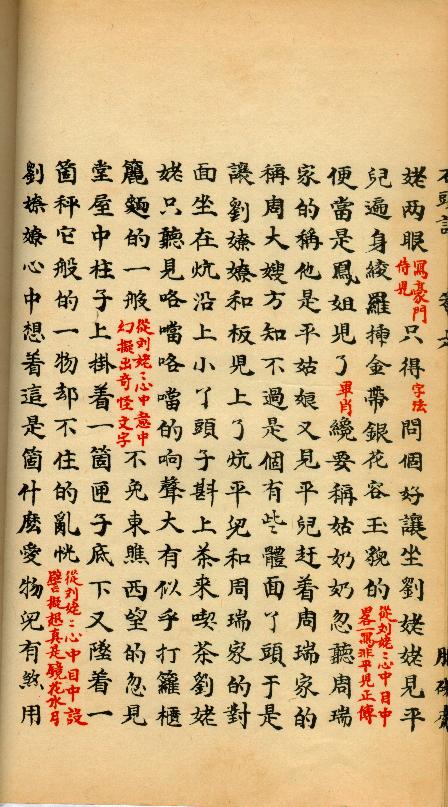 石頭記
姥两眼寫豪門侍兒只得字法問個好讓坐劉姥姥見平
兒遍身綾羅揷金帶銀花容玉貌的從刘姥〻心中目中畧一寫非平兒正傳
便當是鳳姐児了畢肖纔要稱姑奶奶忽聽周瑞
家的稱他是平姑娘又見平兒赶着周瑞家的
稱周大嫂方知不過是個有些體面丫頭于是
讓劉嫽嫽和板児上了炕平兒和周瑞家的對
面坐在炕沿上小丫頭子斟上茶来喫茶劉姥
姥只聽見咯噹咯噹的响聲大有似乎打籮櫃
簏麵的一般從刘姥〻心中意中幻擬出奇怪文字不免東瞧西望的忽見
堂屋中柱子上掛着一箇匣子底下又墜着一
箇秤它般的一物却不住的亂恍從刘姥〻心中目中設譬擬想真是鏡花水月
劉嫽嫽心中想着這是箇什麽愛物兒有煞用